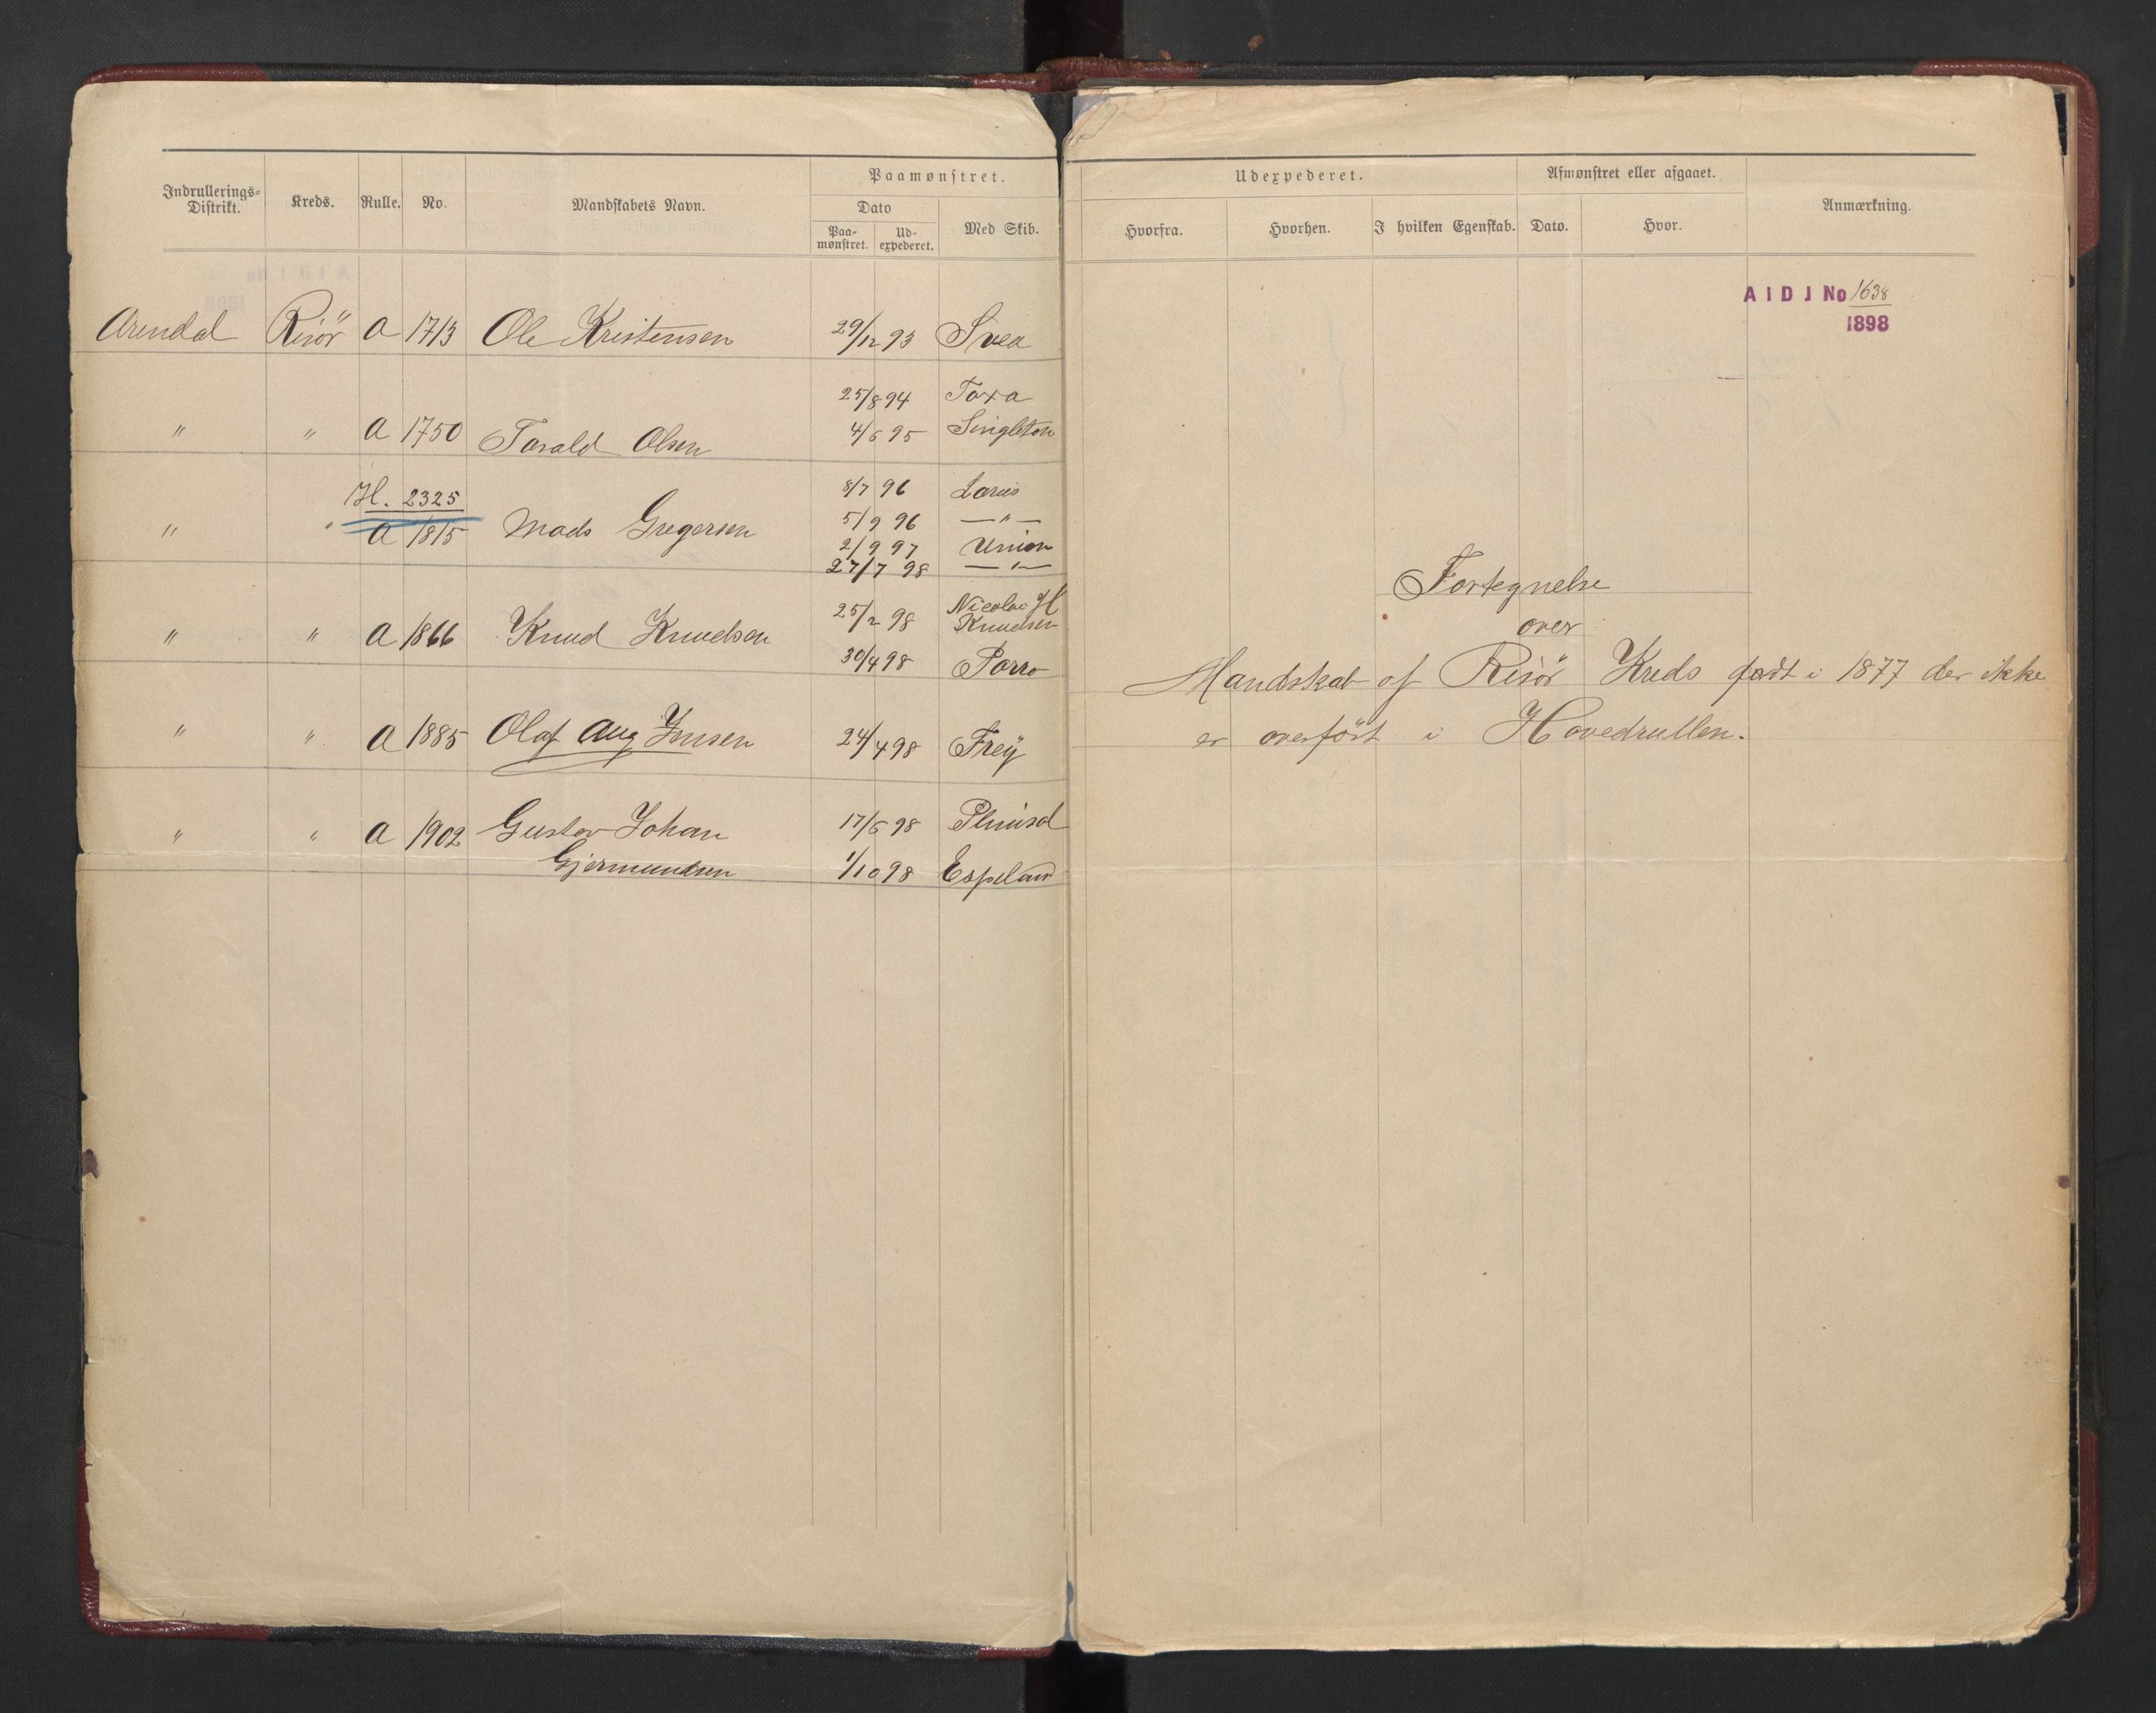 Paamønstret.
Indrullerings-
Distrikt.
Kreds. Rulle. No. Mandskabets Navn. Dato Med Skib.
Paa-
mønstret. Ud-
expederet.
Arendal Risör a 1713 Ole Kristensen 29/12 93 Svea
25/8 94 Taxa
" " a 1750 Tarald Olsen 4/6 95 Singleton
H. 2325 8/7 96
" " a 1815 Mads Gregersen 5/9 96 — " —
2/9 97 Union
27/7 98 — " —
25/2 98 Nicolai H
" " a 1866 Knud Knudsen Knudsen
30/4 98 Porro
" " a 1885 Olaf Aug Jensen 24/4 98 Frey
" " a 1902 Gustav Johan 17/6 98
Gjermundsen 1/10 98 Espeland
Udexpederet. Afmønstret eller afgaaet. Anmærkning.
Hvorfra. Hvorhen. I hvilken Egenskab. Dato. Hvor.
A I D J No 1638
1898
Fortegnelse
over
Mandskab af Risör Kreds født i 1877 der ikke
er overfört i Hovedrullen.